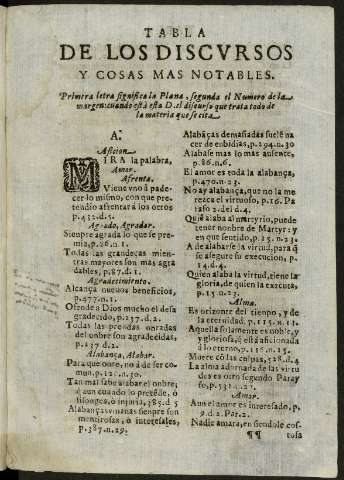 TABLA
DE LOS DISCVRSOS
Y COSAS MAS NOTABLES.
Primera letra significa la Plana, segunda el Numero de la
margen: cuando està esta D. el discurso que trata todo de
la materia que se cita
A.
Aficion.
MIRA la palabra,
Amor.
Afrenta.
Viene vno à pade-
cer lo mismo, con que pre-
tendio afrentar à los otros
p.432.d.5.
Agrado, Agradar.
Siempre agrada lo que se pre-
mia, p.86.n.1.
Todas las grandeças mien-
tras mayores son mas agra
dables, p.87.d.1.
Agradecimiento.
Alcança nueuos beneficios,
p.477.n.1.
Ofende à Dios mucho el desa
gradecido, p.237.d.2.
Todas las prendas onradas
del onbre son agradecidas,
p.137.d.2.
Alabança, Alabar.
Para que onre, no à de ser co-
mun, p.121.n.30.
Tan mal sabe alabar el onbre;
q̃ aun cuando lo procede, ò
lisongea, ò injuria, 385.d.5
Alabanças vmanas sienpre son
mentirosas, ò interesales,
p.387.n.29.
Alabãças demasiadas suelẽ na
cer de enbidias, p.194.n.30
Alabase mas lo mas ausente,
p.86.n.6.
El amor es toda la alabança,
p.470.n.23.
No ay alabança, que no la me-
resca el virtuoso, p.16. Pa
rafo 2.del d.4.
Quiẽ alaba al martyrio, puede
tener nonbre de Martyr: y
en que sentido, p.15.n.23.
A de alabarse la virtud, para q̃
se asegure su execucion, p.
14.d.4.
Quien alaba la virtud, tiene la
gloria, de quien la executa,
p.15.n.23.
Alma.
Es orizonte del tienpo, y de
la eternidad, p.115.n.11.
Aquella solamente es noble, y
y gloriosa, q̃ està aficionada
à lo eterno, p.116.n.15.
Muere cõ las culpas, 528.d.4
La alma adornada de las virtu
des es otro segundo Paray
so, p.531.n.21.
Amor.
Aun el amor es interesado, p.
9.d.2.Par.2.
Nadie amara, en siendole cos-
¶¶
tosa